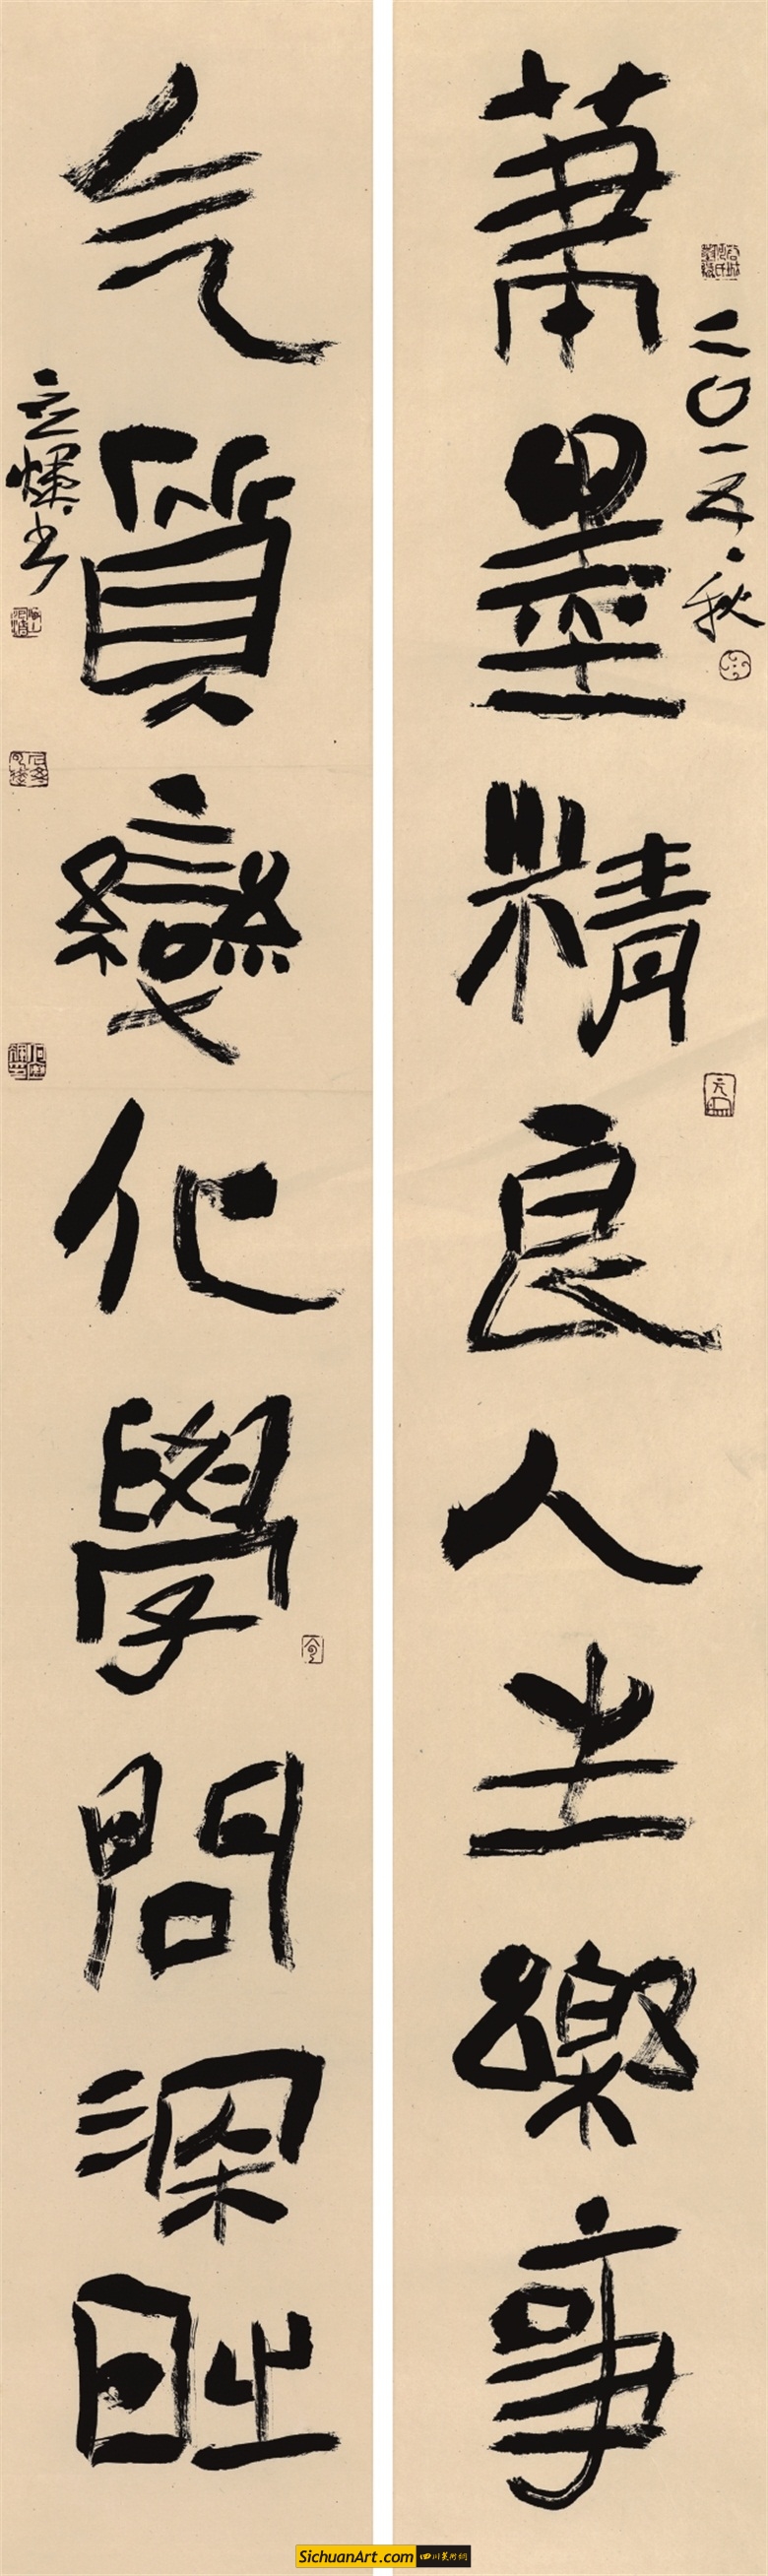 筆墨精良人生樂事
二〇一五·秋
气質變化學問深時
应煇书
SichuanArt.com 四川美術網